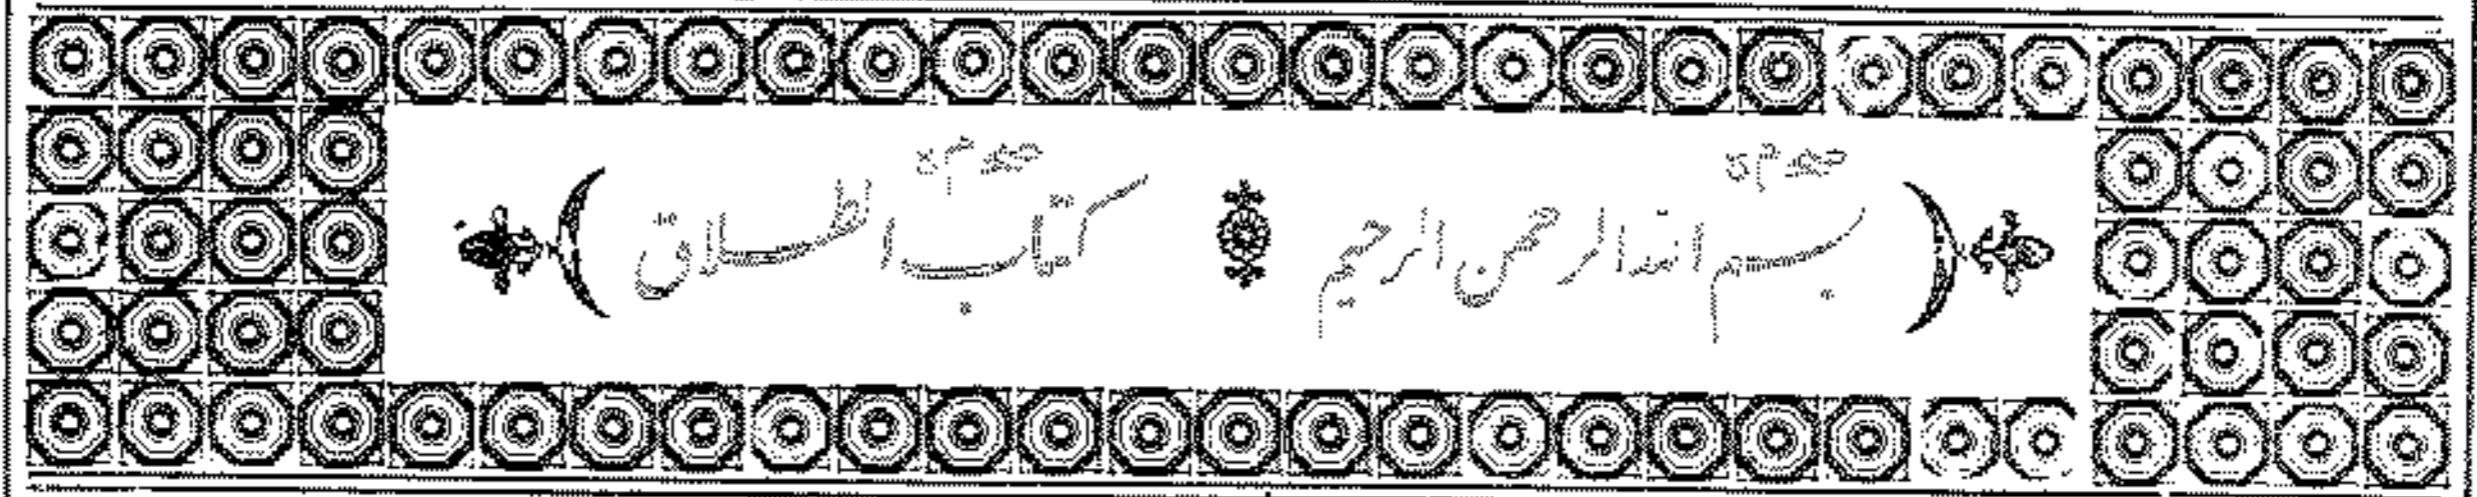 ﴿ بسم الله الرحمن الرحيم ۞ كتاب الطلاق ﴾